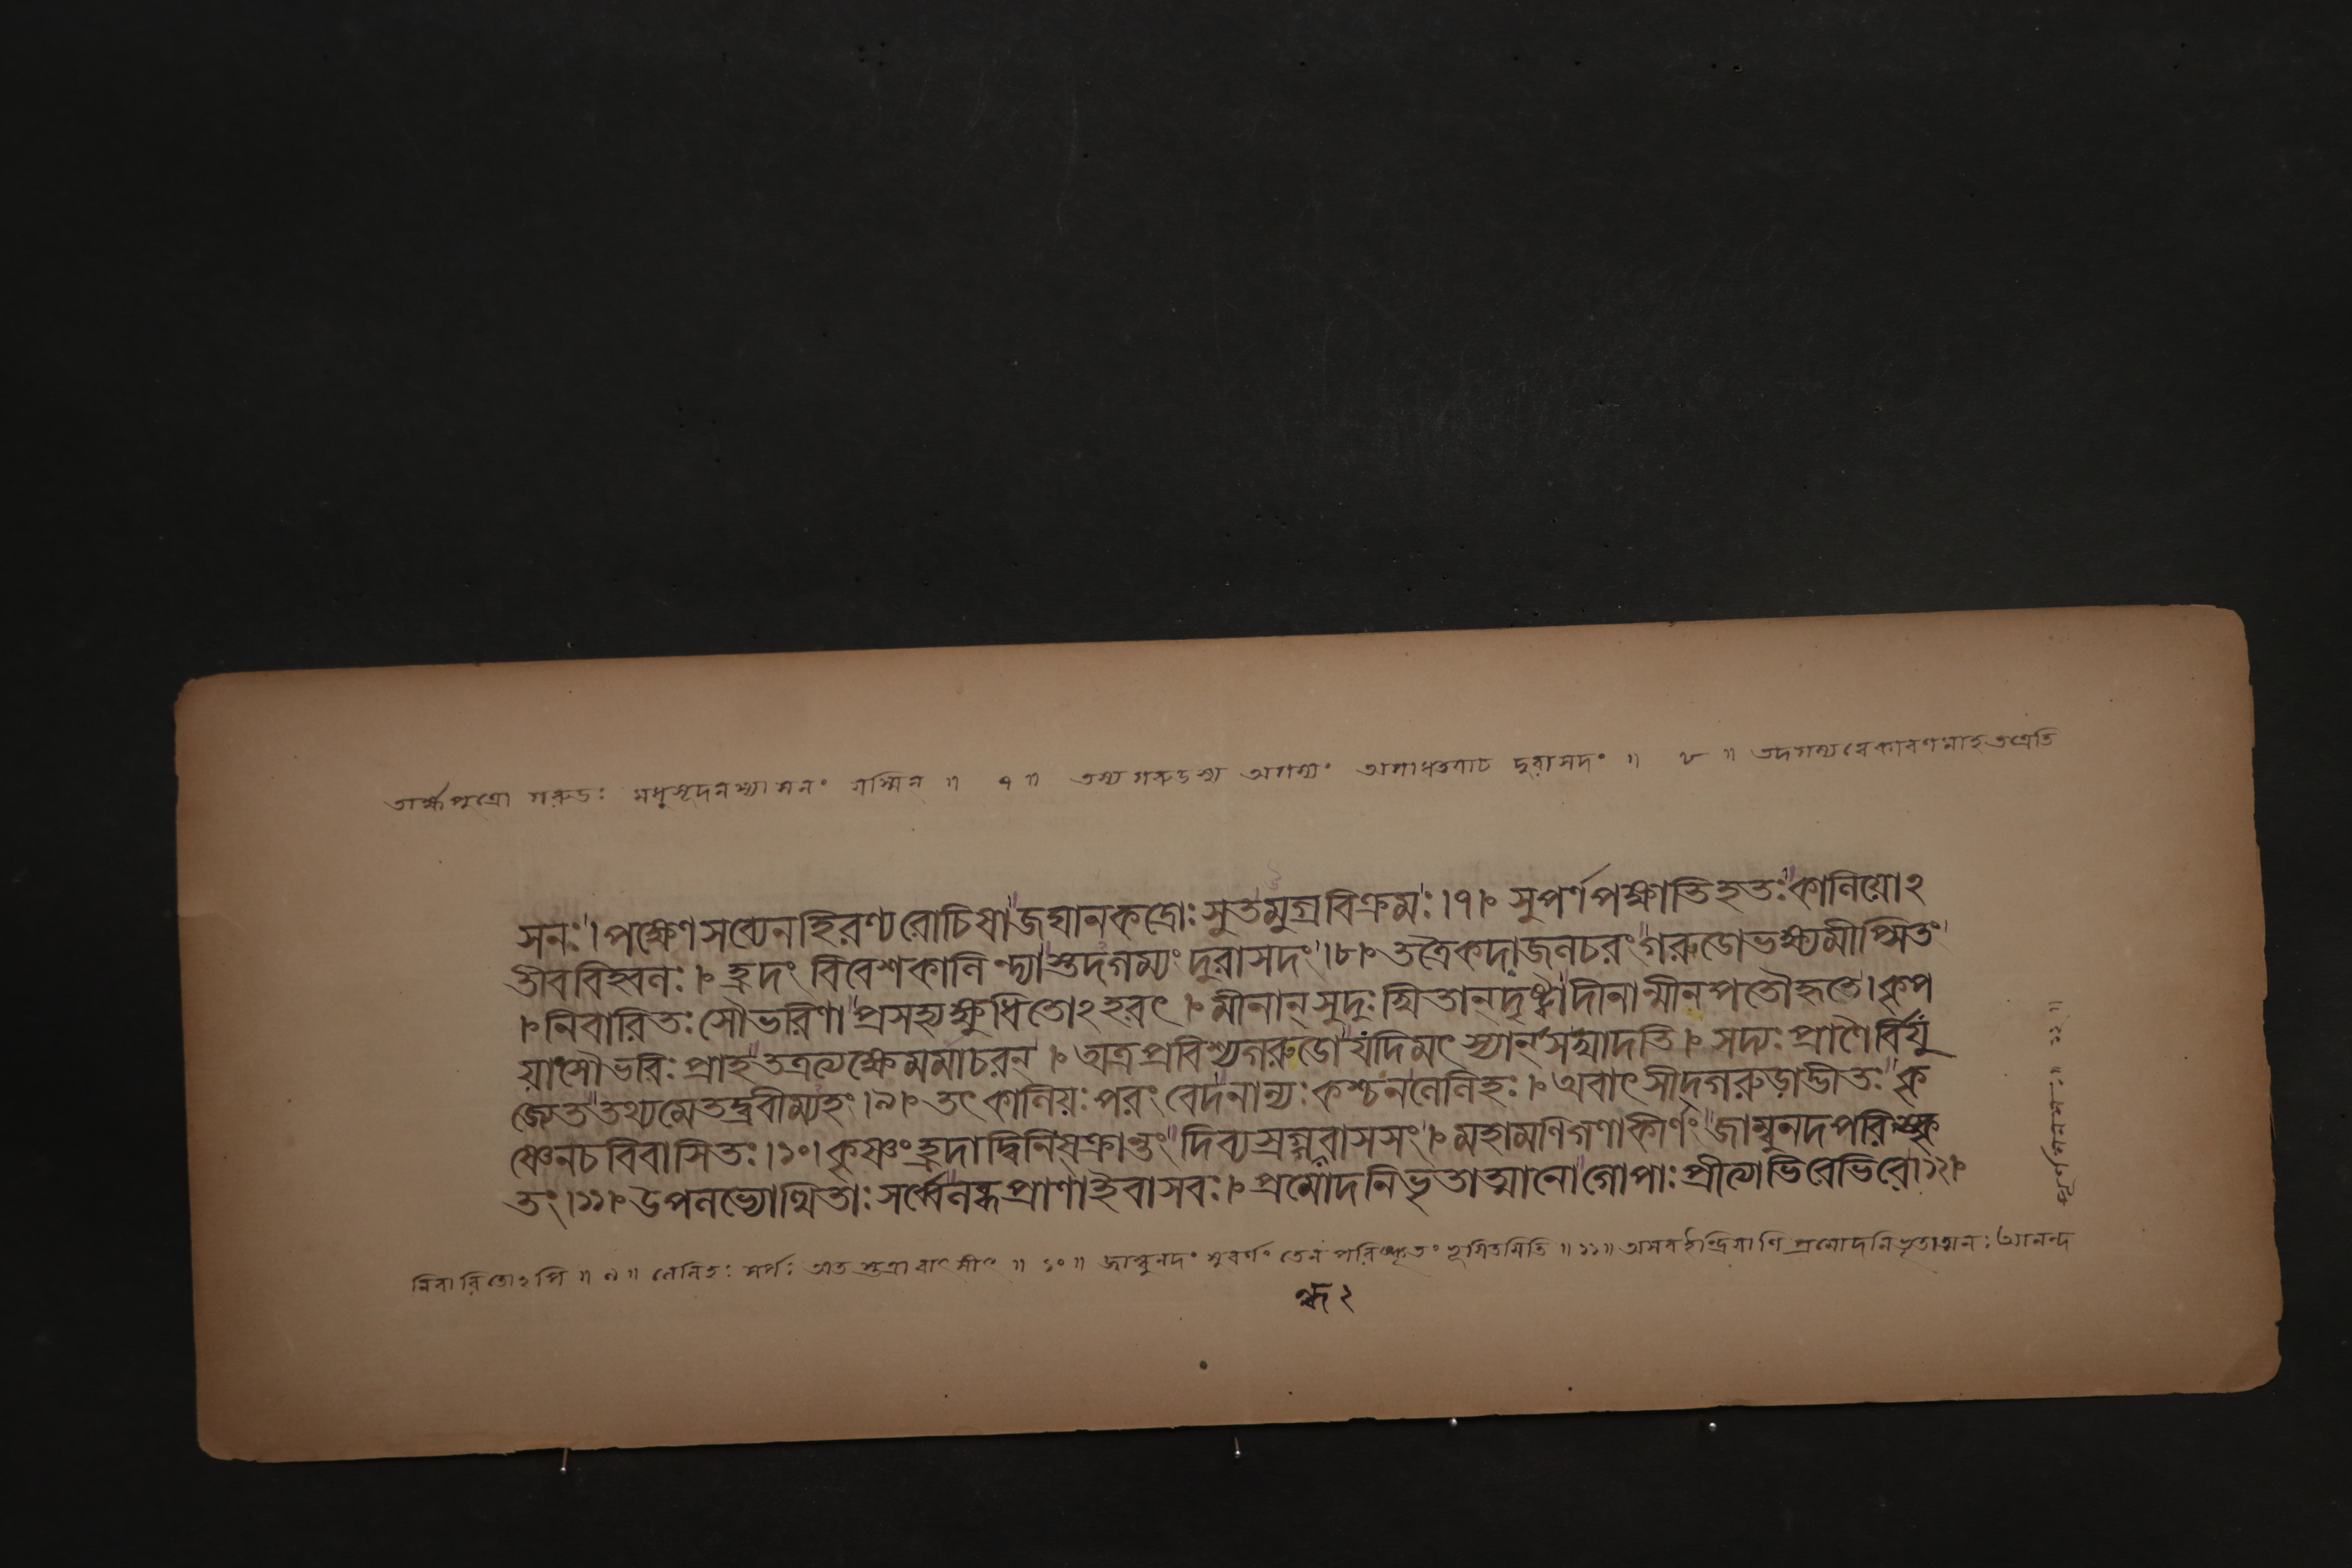 তার্ক্ষপুত্রো গরুডঃ মধুসূদনস্যাসনং যস্মিন ॥ ৭ ॥ তস্য গরুডস্য অগম্যং অগাধতয়াচ দুরাসদং ॥ ৮ ॥ তদগম্যত্বেকারণমাহতত্রেতি
সনঃ। পক্ষেণসব্যেনহিরণ্যরোচিষাজঘানকদ্রোঃ সুতমুগ্রবিক্রমঃ।৭। সুপর্ণপক্ষাতিহতঃকালিয়োঽ
তীববিহ্বলঃ। হ্রদং বিবেশকালিন্দ্যাস্তদগম্যং দুরাসদং।৮। তত্রৈকদাজলচরংগরুডোভক্ষ্যমীপ্সিতং
।নিবারিতঃসৌভরিণাপ্রসহ্যক্ষুধিতোঽহরৎ। মীনান্ সুদুঃখিতান্দৃষ্ট্বাদীনান্মীনপতৌহতে। কৃপ
য়াসৌভরিঃ প্রাহতত্রত্যক্ষেমমাচরন্। অত্রপ্রবিশ্যগরুডোযদিমৎস্যান্সখাদতি। সদ্যঃ প্রাণৈর্বিযু
জ্যেততথ্যমেতদ্ব্রবীম্যহং।৯। তৎ কালিয়ঃ পরং বেদনান্যঃ কশ্চনলেলিহঃ। অবাৎসীদ্গরুড়াদ্ভীতঃকৃ
ষ্ণেনচবিবাসিতঃ।১০। কৃষ্ণংহ্রদাদ্বিনিষ্ক্রান্তংদিব্যস্রগ্গন্ধবাসসং। মহামণিগণাকীর্ণংজাম্বুনদপরিষ্কৃ
তং।১১। উপলভ্যোত্থিতাঃ সর্ব্বেলব্ধপ্রাণাইবাসবঃ। প্রমোদনিভৃতাত্মানোগোপাঃ প্রীত্যাভিরেভিরে।১২।
নিবারিতোঽপি ॥ ৯ ॥ লেলিহঃ সর্পঃ অতস্তত্রাবাৎসীৎ ॥ ১০ ॥ জাম্বুনদং সুবর্ণং তেন পরিষ্কৃতং ভূষিতমিতি ॥ ১১ ॥ অসবইন্দ্রিয়াণি প্রমোদনিভৃতাত্মানঃ আনন্দ
পূর্ণমনসঃ ॥ ১২ ॥